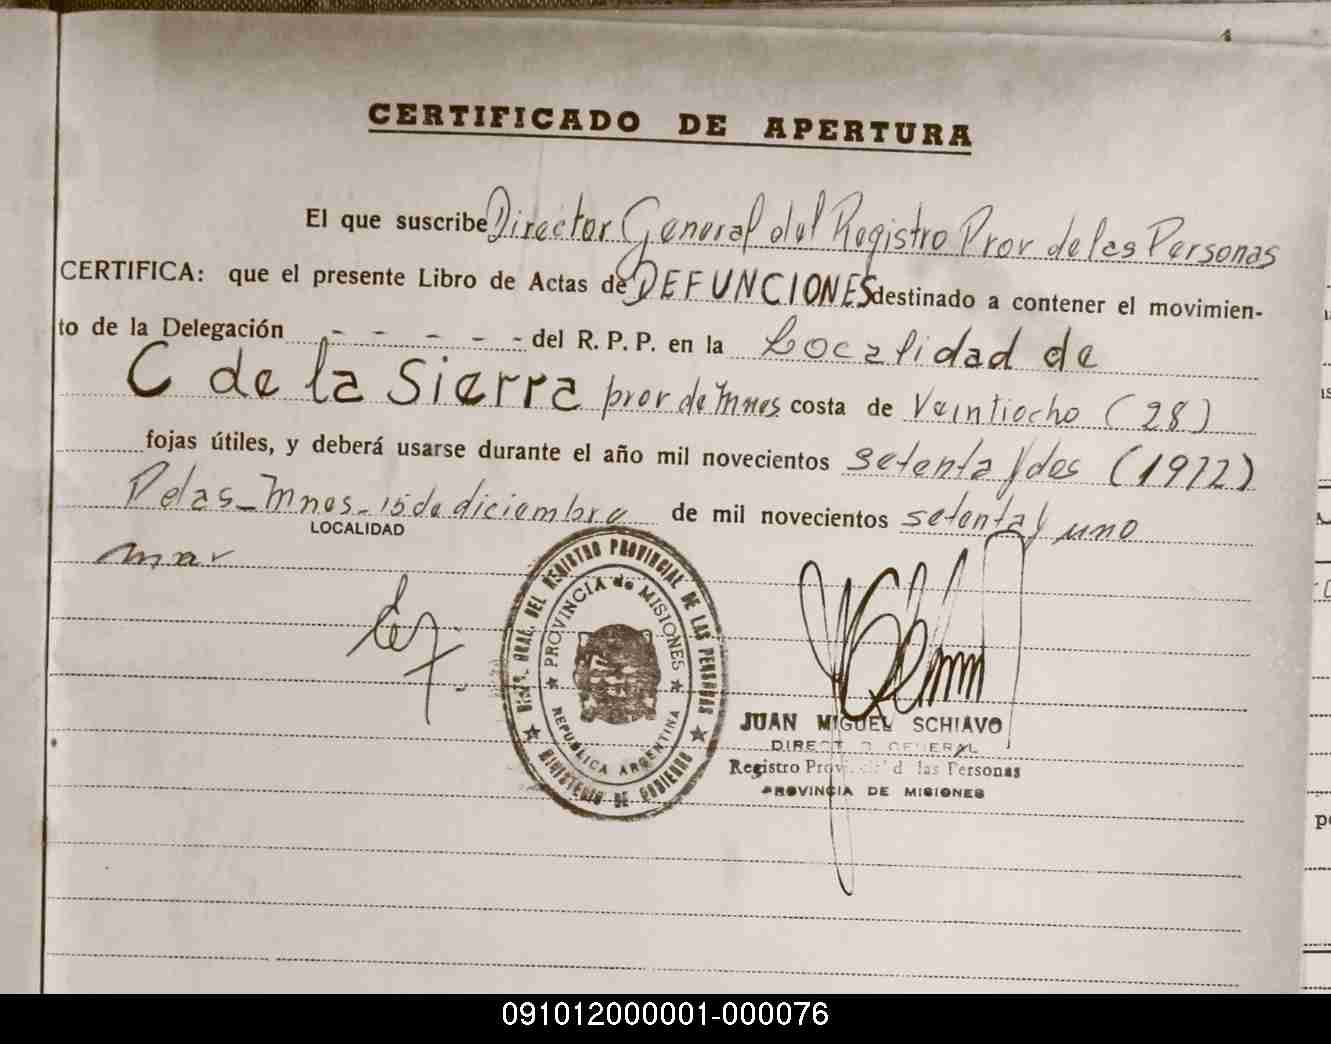 4
CERTIFICADO DE APERTURA
El que suscribe Director General del Registro Prov de las Personas
CERTIFICA: que el presente Libro de Actas de DEFUNCIONES destinado a contener el movimien-
to de la Delegación - - - - - del R. P. P. en la Localidad de
C de la Sierra prov de Mnes costa de Veintiocho (28)
fojas útiles, y deberá usarse durante el año mil novecientos setenta y dos (1972)
Pdas. Mnes. 15 de diciembre de mil novecientos setenta y uno
LOCALIDAD
mar
DEL REGISTRO PROVINCIAL DE LAS PERSONAS
PROVINCIA de MISIONES
REPUBLICA ARGENTINA
MINISTERIO DE GOBIERNO
JUAN MIGUEL SCHIAVO
DIRECTOR GENERAL
Registro Provincial d las Personas
PROVINCIA DE MISIONES
091012000001-000076